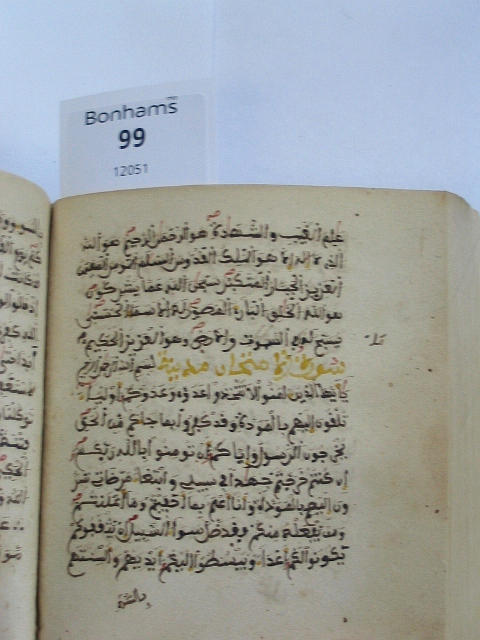 Bonhams
99
12051
علم الغيب والشهادة هو الرحمن الرحيم هو الله
الذي لا إله إلا هو الملك القدوس السلم المومن المهيمن
العزيز الجبار المتكبر سبحن الله عما يشركون
هو الله الخلق البارئ المصور له الاسما الحسنى
يسبح له ما في السموت والارض وهو العزيز الحكيم
سورة الامتحان مدنية بسم الله الرحمن الرحيم
يايها الذين امنوا لا تتخذوا عدوي وعدوكم اولياء
تلقون اليهم بالمودة وقد كفروا بما جاكم من الحق
يخرجون الرسول واياكم ان تومنوا بالله ربكم
ان كنتم خرجتم جهدا في سبيلي وابتغا مرضاتي تسر
ون اليهم بالمودة وانا اعلم بما اخفيتم وما اعلنتم
ومن يفعله منكم فقد ضل سوا السبيل ان يثقفوكم
يكونوا لكم اعدا ويبسطوا اليكم ايديهم والسنتهم
بالسو